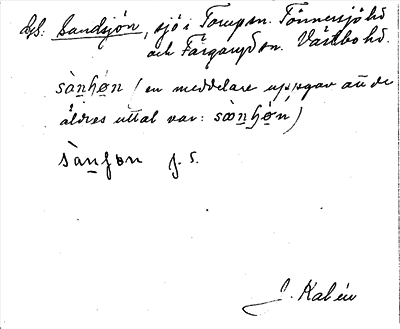 Lgb: Sandsjön, sjö i Torup sn. Tönnersjö hd
och Färgaryd sn. Västbo hd.
sànhøn (en meddelare uppgav att de
äldres uttal var: sòønhǿn)
sànhøn f. s.
J. Kalén